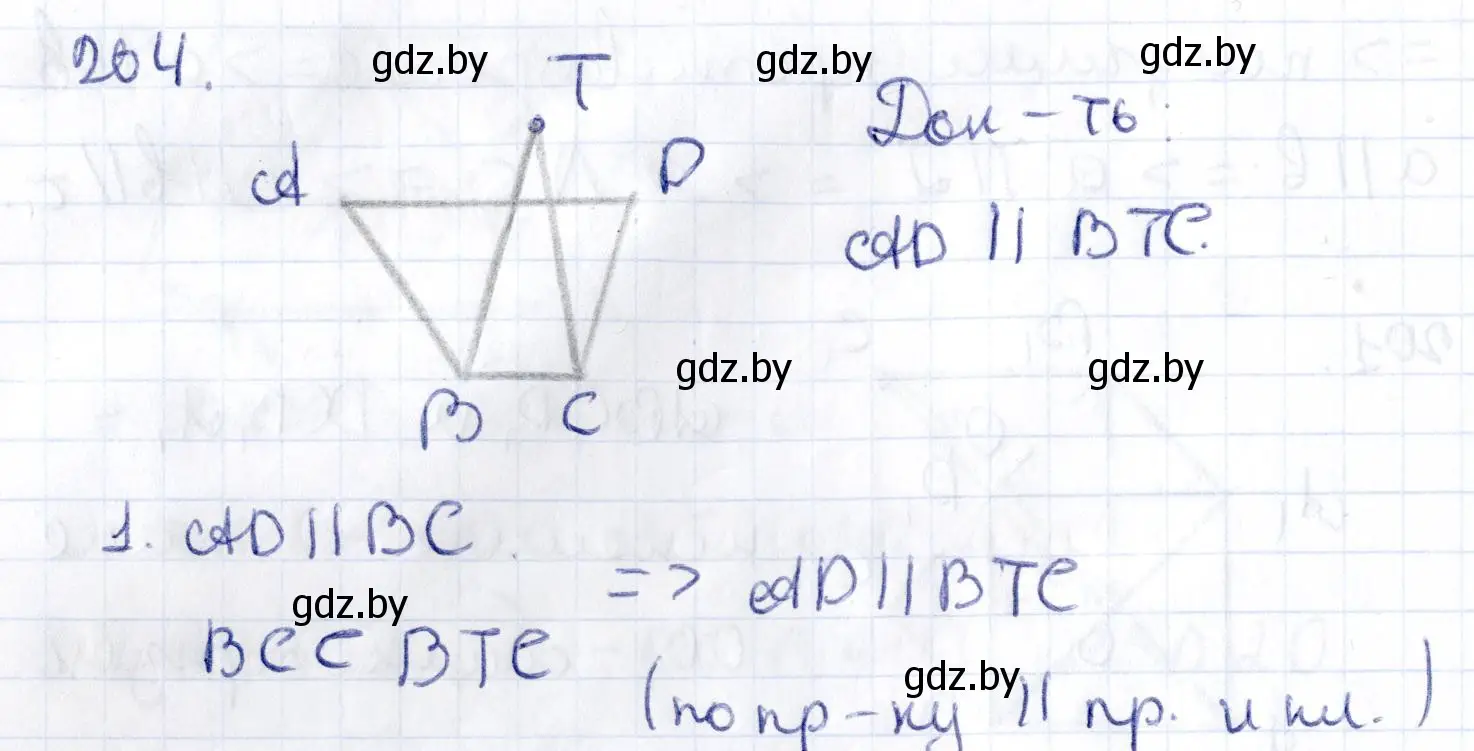 204.
gdz.by gdz.by gdz.by
T
A D
Док-ть:
AD || BTC.
gdz.by gdz.by
B C
1. AD || BC
=> AD || BTC
gdz.by
BC ⊂ BTC
gdz.by
(по пр-ку || пр. и пл.)